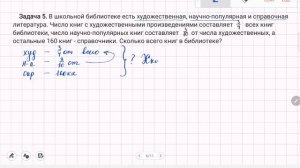 Задача 5. В школьной библиотеке есть художественная, научно-популярная и справочная
литература. Число книг с художественными произведениями составляет всех книг
библиотеки, число научно-популярных книг составляет от числа художественных, а
остальные 160 книг - справочники. Сколько всего книг в библиотеке?
худ — от всего
н.п. — от
спр — 160кн
?